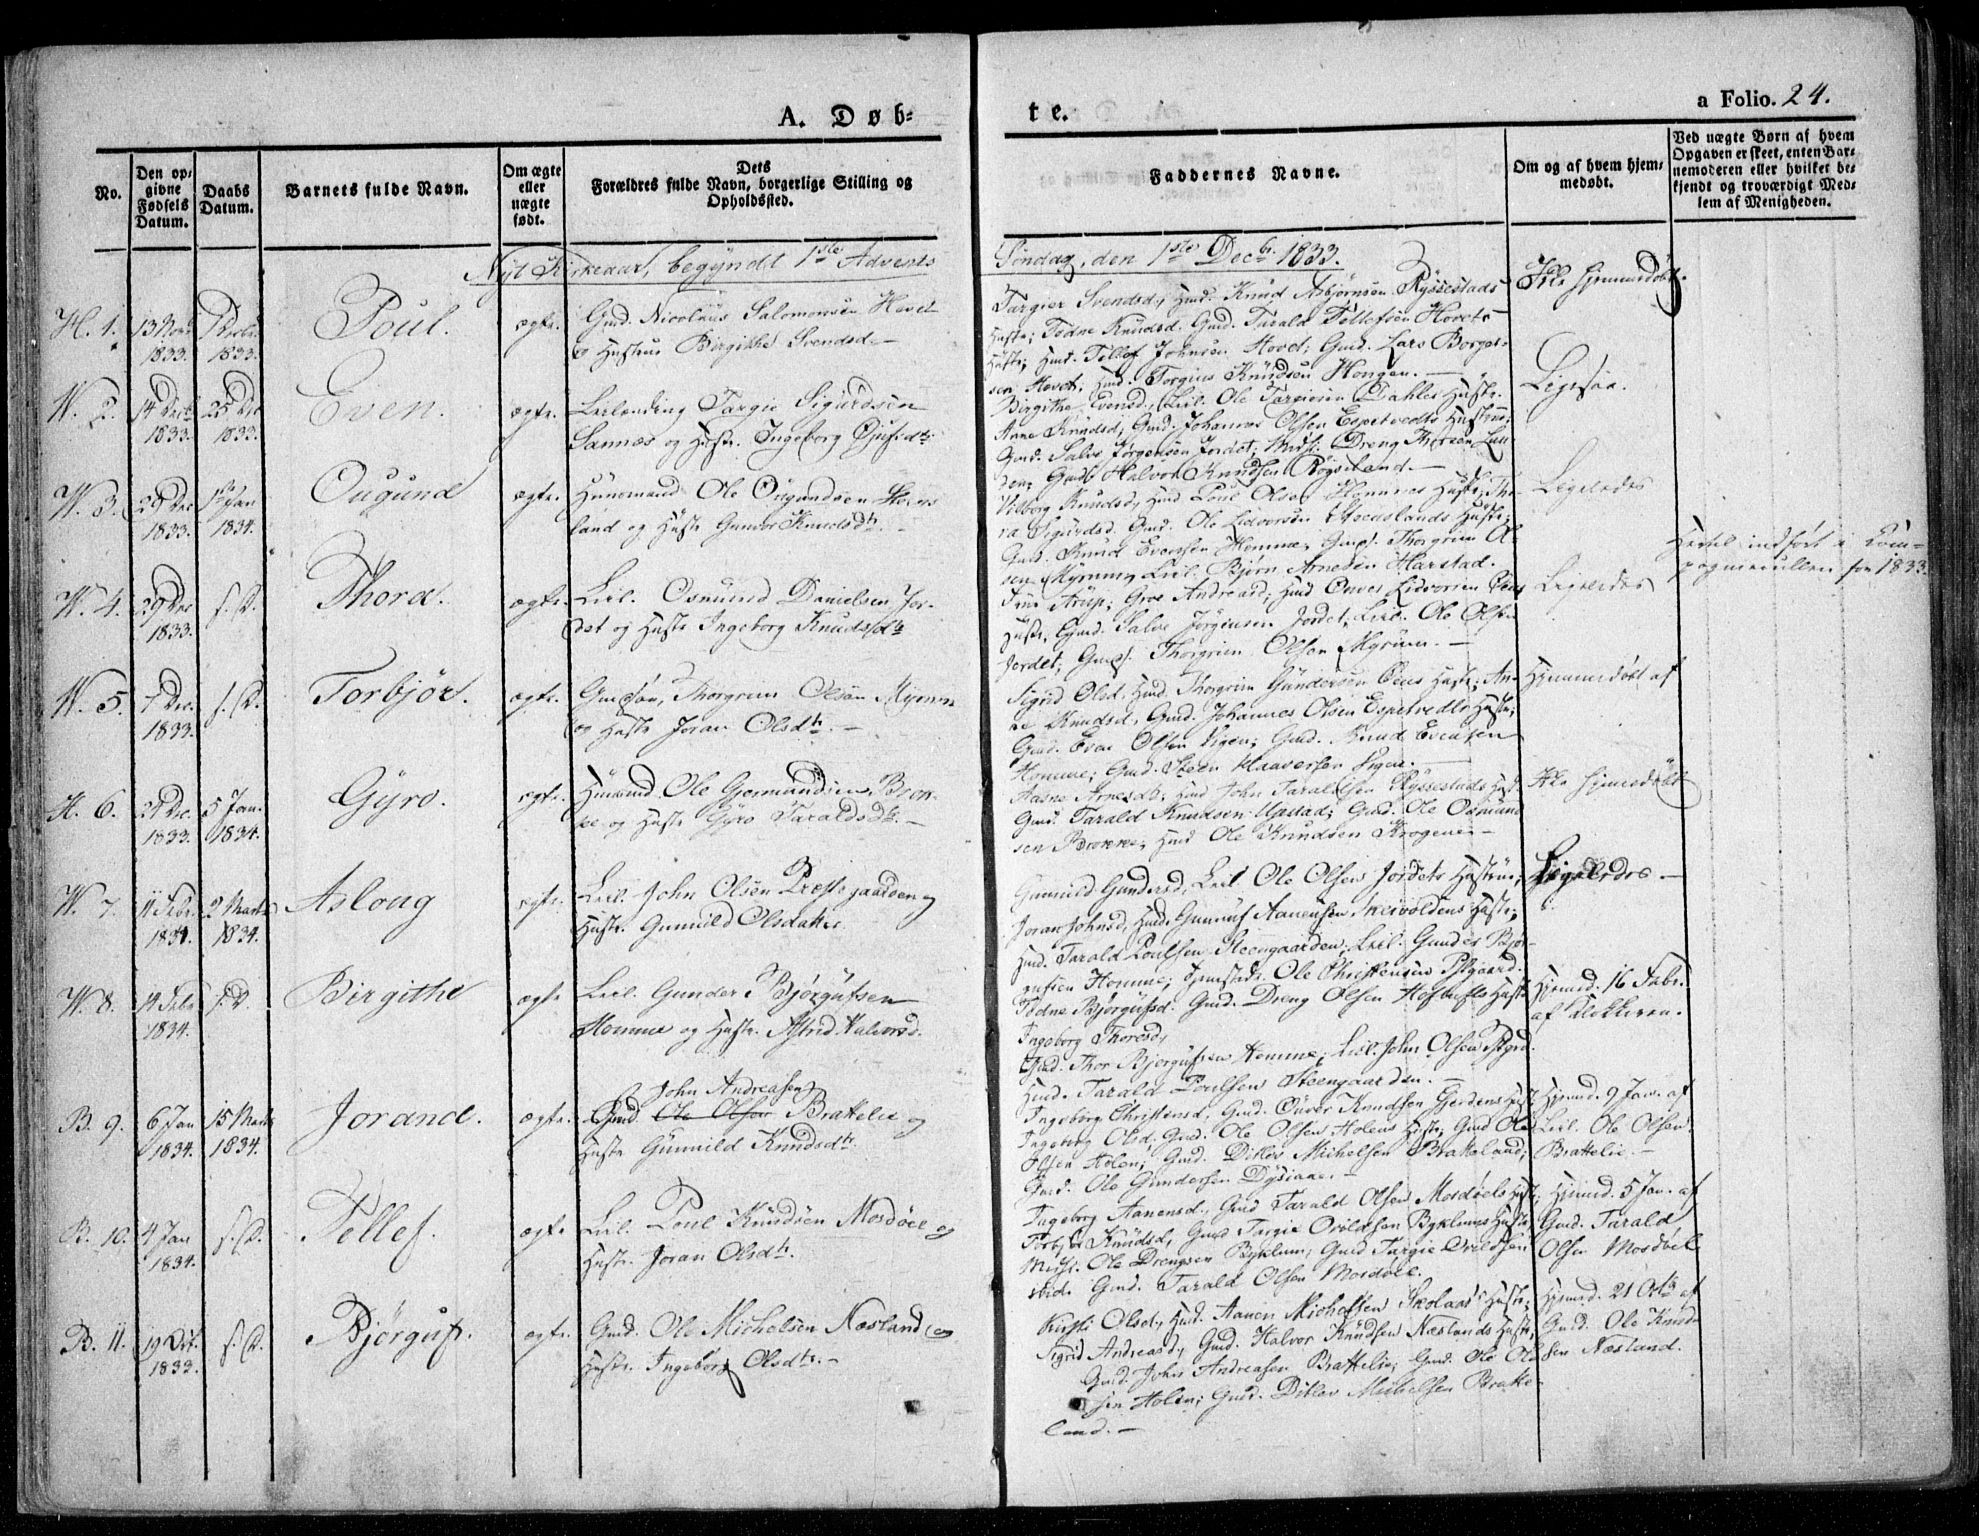 A. Døb-
te.
a Folio. 24.
No.
Den op-
givne
Fødsels
Datum.
Daabs
Datum.
Barnets fulde Navn.
Om ægte
eller
uægte
født.
Dets
Forældres fulde Navn, borgerlige Stilling og
Opholdssted.
Faddernes Navne.
Om og af hvem hjem-
medøbt.
Ved uægte Børn af hvem
Opgaven er skeet, enten Bar-
nemoderen eller hvilket be-
kjendt og troværdigt Med-
lem af Menigheden.
Nyt Kirkeaar, begyndt 1ste Advents
Søndag, den 1ste Decbr. 1833.
H. 1.
13 Nov
1833.
1833.
Poul.
ægte.
Gmd. Nicolaus Salomonsen Hovet
og Hustrue Birgithe Svendsd.
Targier Svendsd, Hmd. Knud Asbjørnsen Rysestads
Huste; Todne Knudsd. Gmd. Tarald Tollefsen Hovets
Huste; Hmd. Tollef Johnsen Hovet; Gmd. Lars Borgei-
sen Hovet; Hmd. Torgius Knudsen Hongen.
Ikke hjemmedøbt.
W. 2.
14 Dec
1833.
25 Dec
1833.
Even.
ægte.
Leilænding Targie Sigurdsen
Sannes og Hustr. Ingeborg Gjufsdtr.
Birgithe Evensd, Leil. Ole Dahles Hustr.
Anne Knudsd, Gmd. Johannes Olsen Espetvedts Hustrue;
Gmd. Salve Jørgensen Jordet; Dreng Thorsen
sen; Gmd. Halvor Knudsen Rygseland.
Ligesaa.
W. 3.
1833.
1ste Jan
1834.
Ougund
ægte.
Huusmand Ole Ougundsen
land og Huste Gunvor Knudsdtr.
Vilborg Knudsd, Hmd. Poul Olsen Hommes Huste;
ra Sigurdsd. Gmd. Ole Lidvorsen Huste;
Gmd. Knud Evensen Homme, Thorgrim Ol-
sen Myrum, Leil. Bjørn Arnesen Harstad.
Ligeledes
Hertil indført i Com-
pagnierullen for 1833.
W. 4.
29 Dec
1833.
s. D.
Thora.
ægte.
Leil. Osmund Danielsen Jor-
det og Huste Ingeborg Knudsdtr
Huste, Gmd. Salve Jørgensen Jordet; Leil. Ole Olsen
Jordet; Thorgrim Olsen Myrum.
Ligeledes
W. 5.
7 Dec.
1833.
s. D.
Torbjør.
ægte.
Thorgrim Olsen Myrum
og Huste Joran Olsdtr.
Sigrid Olsd, Hmd. Thorgrim Gundersen Huste; An-
ne Knudsd, Gmd. Johannes Olsen Espetvedts Huste;
Gmd. Even Olsen Vigen; Gmd. Knud Evensen
Homme; Gmd. Steen Haaversen Vigen.
Hjemmedøbt af
H. 6.
1833.
5 Jan.
1834.
Gyro.
ægte.
Huusmd. Ole Gormundsen Brok-
ke og Huste Gyro Taraldsdtr.
Aasne Arnesdtr; Hmd. John Taraldsen Ryssestads Hust
Gmd. Tarald Knudsen Upstad; Gmd. Ole Osmund
sen Brokke; Hmd. Ole Knudsen Krogene
Ikke hjemmedøbt
W. 7.
11 Febr.
1834.
2 Marts
1834.
Asloug
ægte.
Leil. John Olsen Prestegaarden og
Hustr. Gunnild Olsdatter.
Gunnild Gundersd, Leil. Ole Olsen Jordets Hustrue,
Joran Johnsd, Hmd. Gunnuf Aanensen Skeivoldens Huste;
Hmd. Tarald Poulsen Steengaarden, Leil. Gunder Bjør-
gufsen Homme; Ole Christensen
Ligeledes
W. 8.
14 Febr
1834.
s. D.
Birgithe
ægte
Leil. Gunder Bjørgufsen
Homme og Hustr. Astrid Halvorsd.
Todne Bjørgufsd. Gmd. Dreng Olsen Hoftufts Hust
Ingeborg Thorsd,
Gmd. Thor Bjørgufsen Homme; Leil. John Olsen Pstgrd.
Hmd. Tarald Poulsen Steengaarden.
Hjemd. 16 Febr.
af Klokkeren.
B. 9.
6 Jan
1834.
15 Marts
1834.
Jorand.
ægte.
John Andreasen
Gmd. Ole Olsen Brattelie og
Huste Gunnild Knudsdtr.
Ingeborg Christensd, Gmd. Ouver Knudsen Gjerdens Hust
Ingeborg Olsd. Gmd. Ole Olsen Holens Huste; Gmd. Ole
Olsen Holen; Gmd. Ditlev Michelsen Brakeland;
Gmd. Ole Gundersen Dysiane.
Hjemd. 9 Jan. af
Leil. Ole Olsen
Brattelie.
B. 10.
4 Jan
1834.
s. D.
Tellef.
ægte
Leil. Poul Knudsen Mosdøel og
Hustr. Joran Olsdtr.
Ingeborg Aanensd, Gmd. Tarald Olsen Mosdøels Hust
Torbjør Knudsd, Gmd. Targie Ovildsen Byklums Huste,
Ole Drengsen Byklum; Gmd. Targie Ovildsen
ibid. Gmd. Tarald Olsen Mosdøel.
Hjemd. 5 Jan. af
Gmd. Tarald
Olsen Mosdøel
B. 11.
19 Oct.
1833.
s. D.
Bjørguf.
ægte.
Gmd. Ole Michelsen Næsland og
Hustr. Ingeborg Olsdtr.
Kirsti Olsd, Hmd. Aanen Michelsen Skolaas's Huste;
Sigrid Andreasd, Gmd. Halvor Knudsen Næslands Huste,
Gmd. John Andreasen Brattelie; Gmd. Ole Ol-
sen Holen; Gmd. Ditlev Michelsen Brake-
land.
Hjemd. 21 Octbr. af
Gmd. Ole Knud-
sen Næsland.